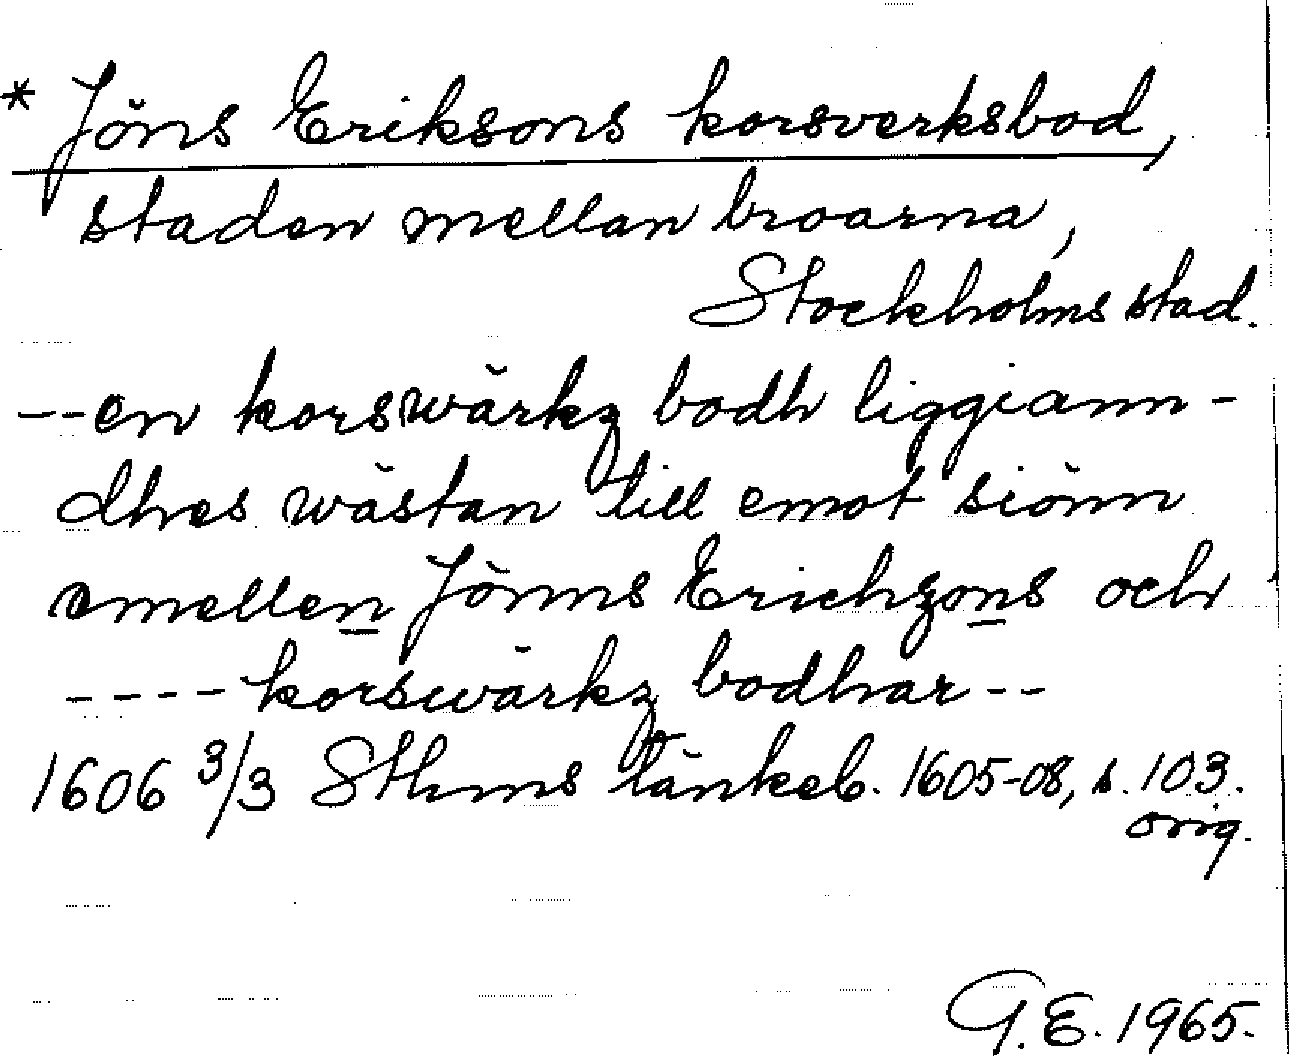 * Jöns Eriksons korsverksbod,
staden mellan broarna,
Stockholms stad.
--en korswärkz bodh liggiann-
dhes wästan till emot siönn
emellen Jönns Erichzons och
---- korswärkz bodhar--
1606 3/3 Sthms tänkeb. 1605-08, s. 103.
orig.
G.E. 1965.